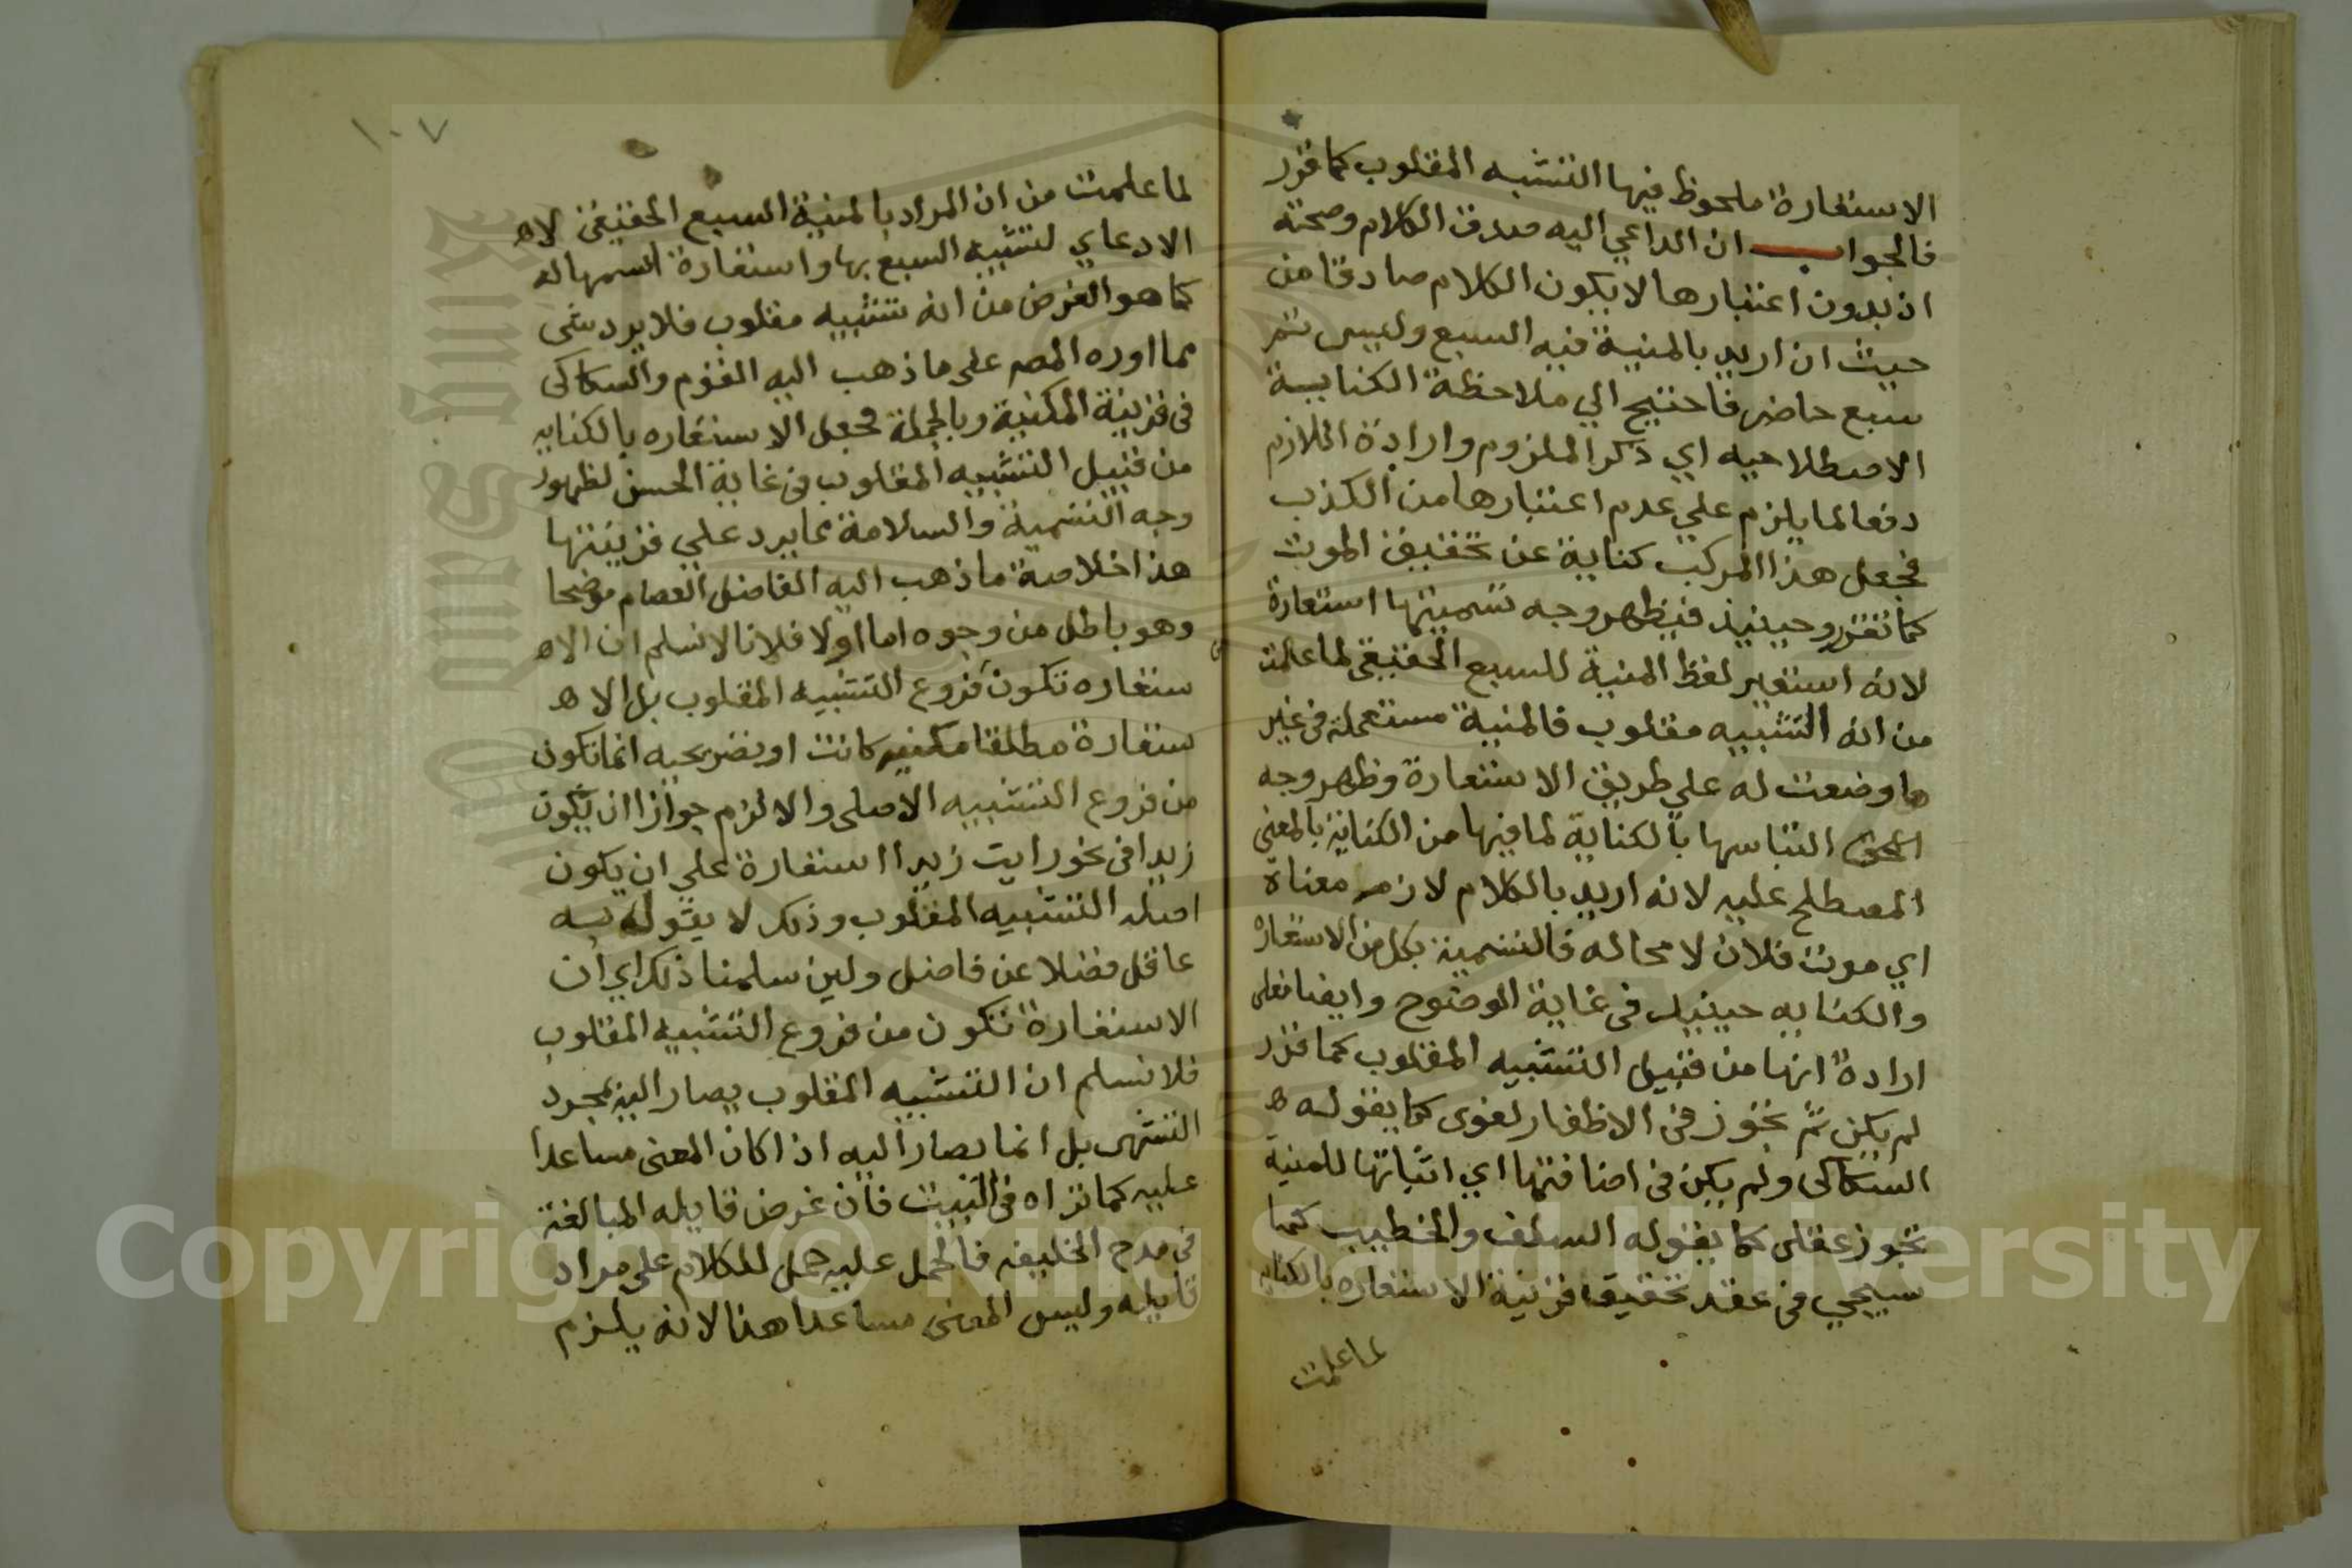 الاستعارة ملحوظ فيها التشبه المقلوب كما قرر
فالجواب ان الداعي اليه صدق الكلام وصحته
اذ بدون اعتبارها لا يكون الكلام صادقا من
حيث ان اريد بالمنية فيه السبع وليس ثم
سبع حاضر فاحتيج الي ملاحظة الكنايية
الاصطلاحيه اي ذكر الملزوم وارادة اللازم
دفعا لما يلزم علي عدم اعتبارها من الكذب
فجعل هذا المركب كناية عن تحقيق الموت
كما تقرر وحينيذ فيظهر وجه تسميتها استعارة
لانه استعير لفظ المنية للسبع الحقيقي لما علمت
من انه التشبيه مقلوب فالمنية مستعملة في غير
ما وضعت له علي طريق الاستعارة وظهر وجه
التباسها بالكناية لما فيها من الكناية بالمعني
المصطلح عليه لانه اريد بالكلام لازم معناة
اي موت فلان لا محاله فالتسمية بكل من الاستعاره
والكنايه حينيذ في غاية الوضوح وايضا فعلي
ارادة انها من قبيل التشبيه المقلوب كما قرر
لم يكن ثم تجوز في الاظفار لغوى كما يقوله
السكاكى ولم يكن في اضافتها اي اثباتها للمنية
تجوز عقلى كما يقوله السلف والخطيب كما
سيجي في عقد تحقيق قرينة الاستعاره بالكنايه
لما علمت
١٠٧
لما علمت من ان المراد بالمنية السبع الحقيقى لا
الادعاي لتشبيه السبع بها واستعارة اسمها له
كما هو الغرض من انه تشبيه مقلوب فلا يرد شى
مما اورده المصـ على ما ذهب اليه القوم والسكاكى
في قرينة المكنية وبالجملة فجعل الاستعاره بالكنايه
من قبيل التشبيه المقلوب في غاية الحسن لظهور
وجه التسمية والسلامة عما يرد علي قرينتها
هذا خلاصة ما ذهب اليه الفاضل العصام موضحا
وهو باطل من وجوه اما اولا فلانا لا نسلم ان الا
ستعاره تكون فروع التشبيه المقلوب بل الا
ستعارة مطلقا مكنيه كانت او تصريحيه انما تكون
من فروع التشبيه الاصلى والا لزم جوازا ان يكون
زيدا في نحو رايت زيدا استعارة علي ان يكون
اصله التشبيه المقلوب وذلك لا يقوله به
عاقل فضلا عن فاضل ولين سلمنا ذلك اي ان
الاستعارة تكون من فروع التشبيه المقلوب
فلا نسلم ان التشبيه المقلوب يصار اليه بمجرد
التشهى بل انما يصار اليه اذا كان المعنى مساعدا
عليه كما تراه في البيت فان غرض قايله المبالغة
في مدح الخليفه فالحمل عليه حمل للكلام على مراد
قايله وليس المعنى مساعدا هنا لانه يلزم
Copyright © King Saud University